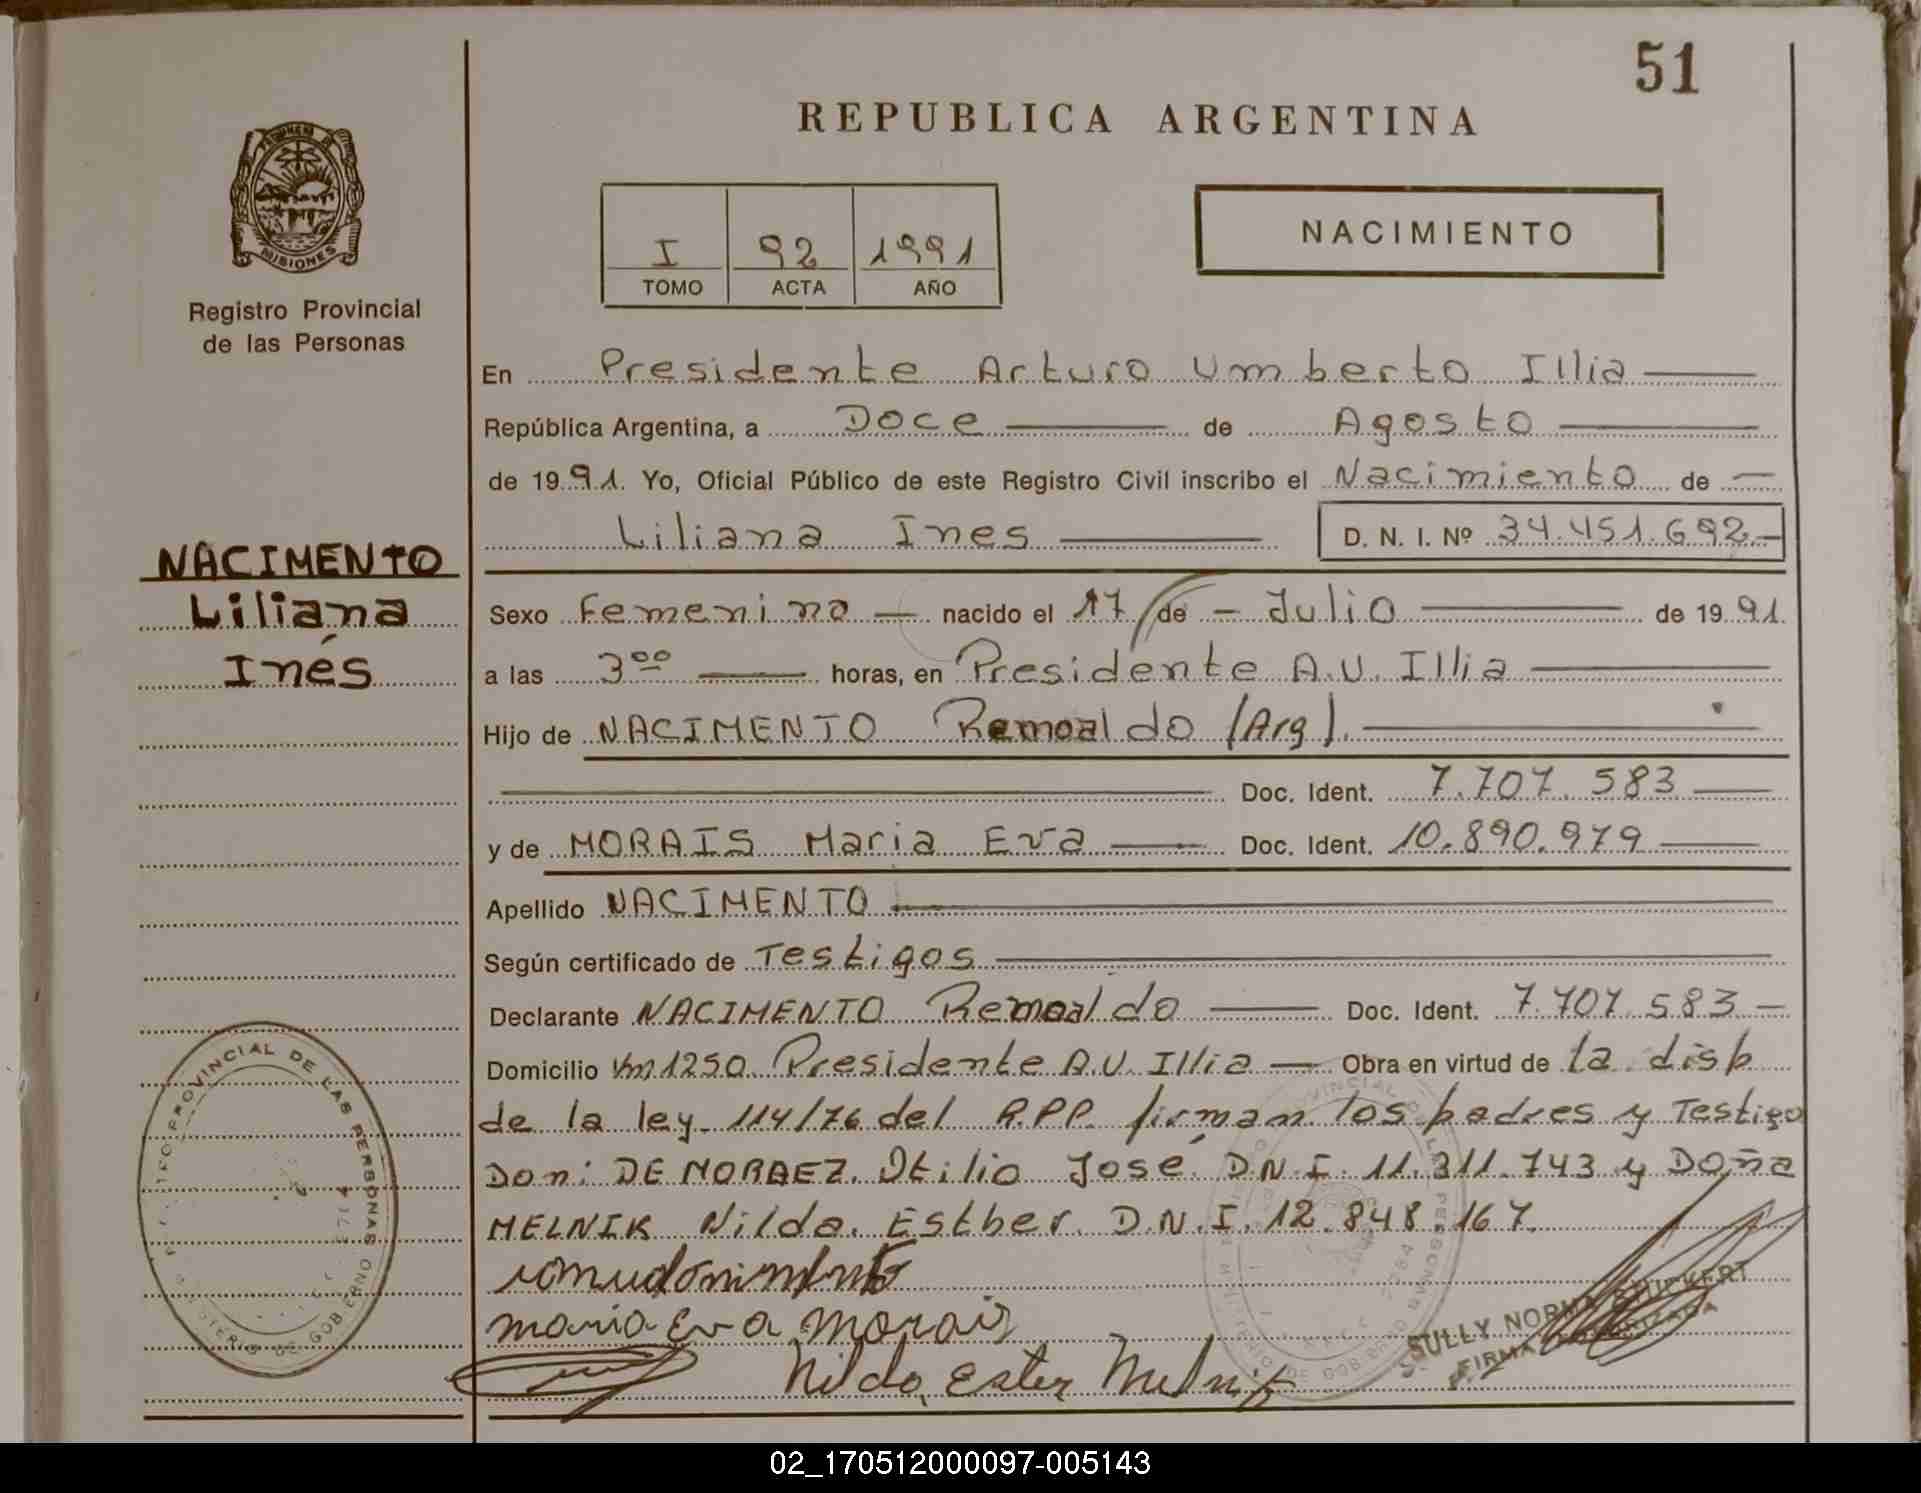 51
REPUBLICA ARGENTINA
MISIONES
Registro Provincial
de las Personas
I 92 1991
TOMO ACTA AÑO
NACIMIENTO
En Presidente Arturo Umberto Illia
República Argentina, a Doce de Agosto
de 1991. Yo, Oficial Público de este Registro Civil inscribo el Nacimiento de
Liliana Ines D. N. I. Nº 34.451.692.-
NACIMENTO
Liliana
Inés
Sexo Femenino nacido el 17 de Julio de 1991
a las 3 00 horas, en Presidente A.U. Illia
Hijo de NACIMENTO Remoaldo (Arg).
Doc. Ident. 7.707.583
y de MORAIS Maria Eva Doc. Ident. 10.890.979
Apellido NACIMENTO
Según certificado de Testigos
Declarante NACIMENTO Remoaldo Doc. Ident. 7.707.583
Domicilio Km 1250 Presidente A.U. Illia Obra en virtud de la disp
de la ley. 114/76 del R.P.P. firman los padres y Testigo
Don: DE MORAEZ Otilio José D.N.I. 11.311.743 y Doña
MELNIK Nilda Estber D.N.I. 12.848.167.
maria Eva Morais
Nilda Ester Melnik
SULLY NORMA STUCKERT
FIRMA AUTORIZADA
PROVINCIAL DE LAS PERSONAS
DE GOBIERNO
02_170512000097-005143